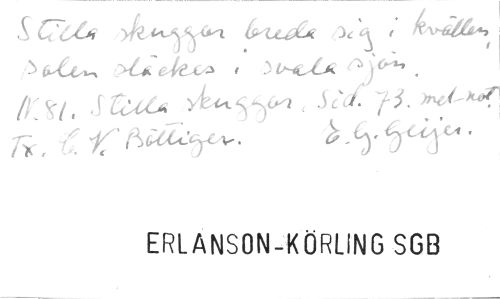 Stilla skuggor breda sig i kvällen,
solen släckes i svala sjön.
N.81. Stilla skuggor. Sid. 73. mel-not.
Tx. C. V. Böttiger. E. G. Geijer.
ERLANSON-KÖRLING SGB